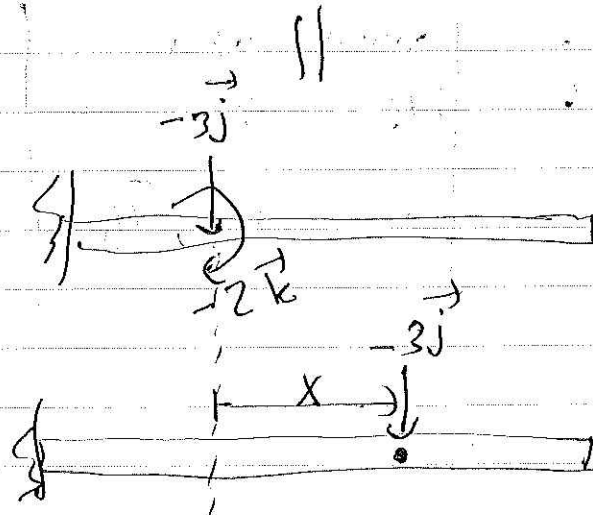 ||
-3j⃗
-2k⃗
-3j⃗
X